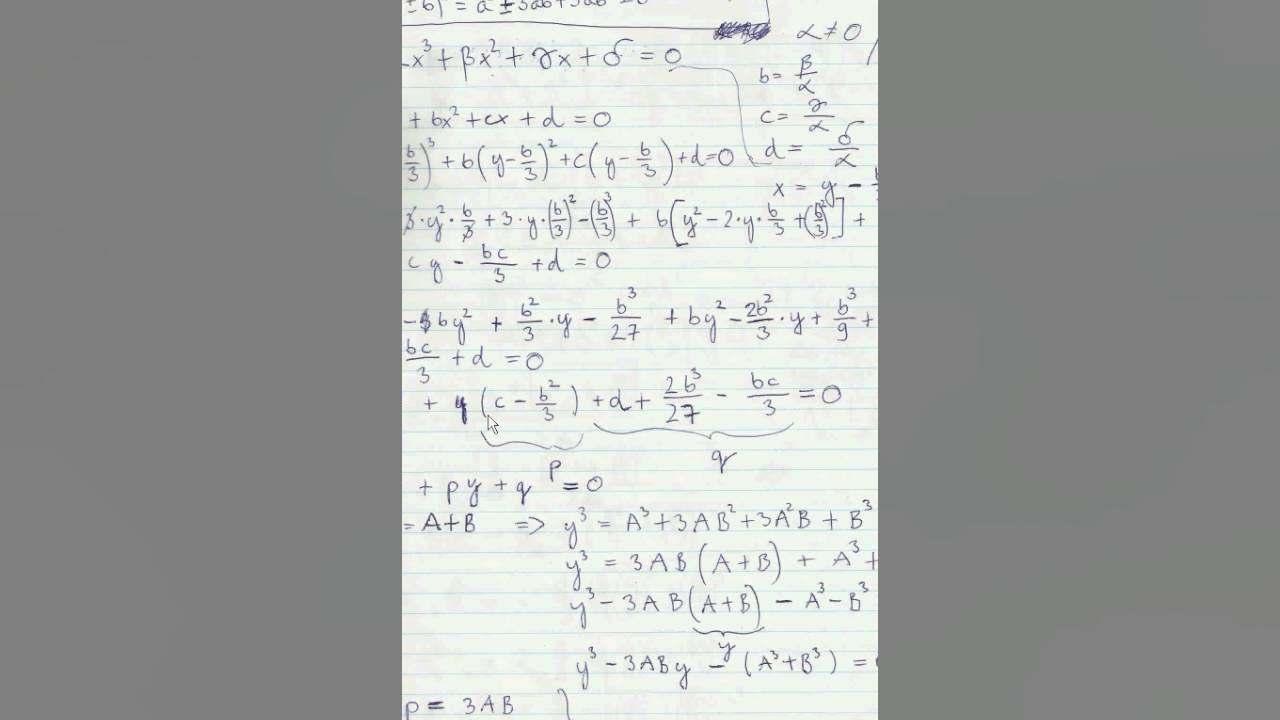 ±b)³ = a³ ± 3a²b + 3ab²
α ≠ 0
x³ + βx² + γx + δ = 0
b = β/α
+ bx² + cx + d = 0
c = γ/α
b/3)³ + b(y - b/3)² + c(y - b/3) + d = 0
d = δ/α
x = y -
3·y²·b/3 + 3·y·(b/3)² - (b/3)³ + b[y² - 2·y·b/3 + (b/3)²] +
cy - bc/3 + d = 0
- by² + b²/3·y - b³/27 + by² - 2b²/3·y + b³/9 +
bc/3 + d = 0
+ y(c - b²/3) + d + 2b³/27 - bc/3 = 0
p
q
+ py + q = 0
= A+B => y³ = A³ + 3AB² + 3A²B + B³
y³ = 3AB(A+B) + A³ +
y³ - 3AB(A+B) - A³ - B³
y
y³ - 3ABy - (A³+B³) =
p = 3AB